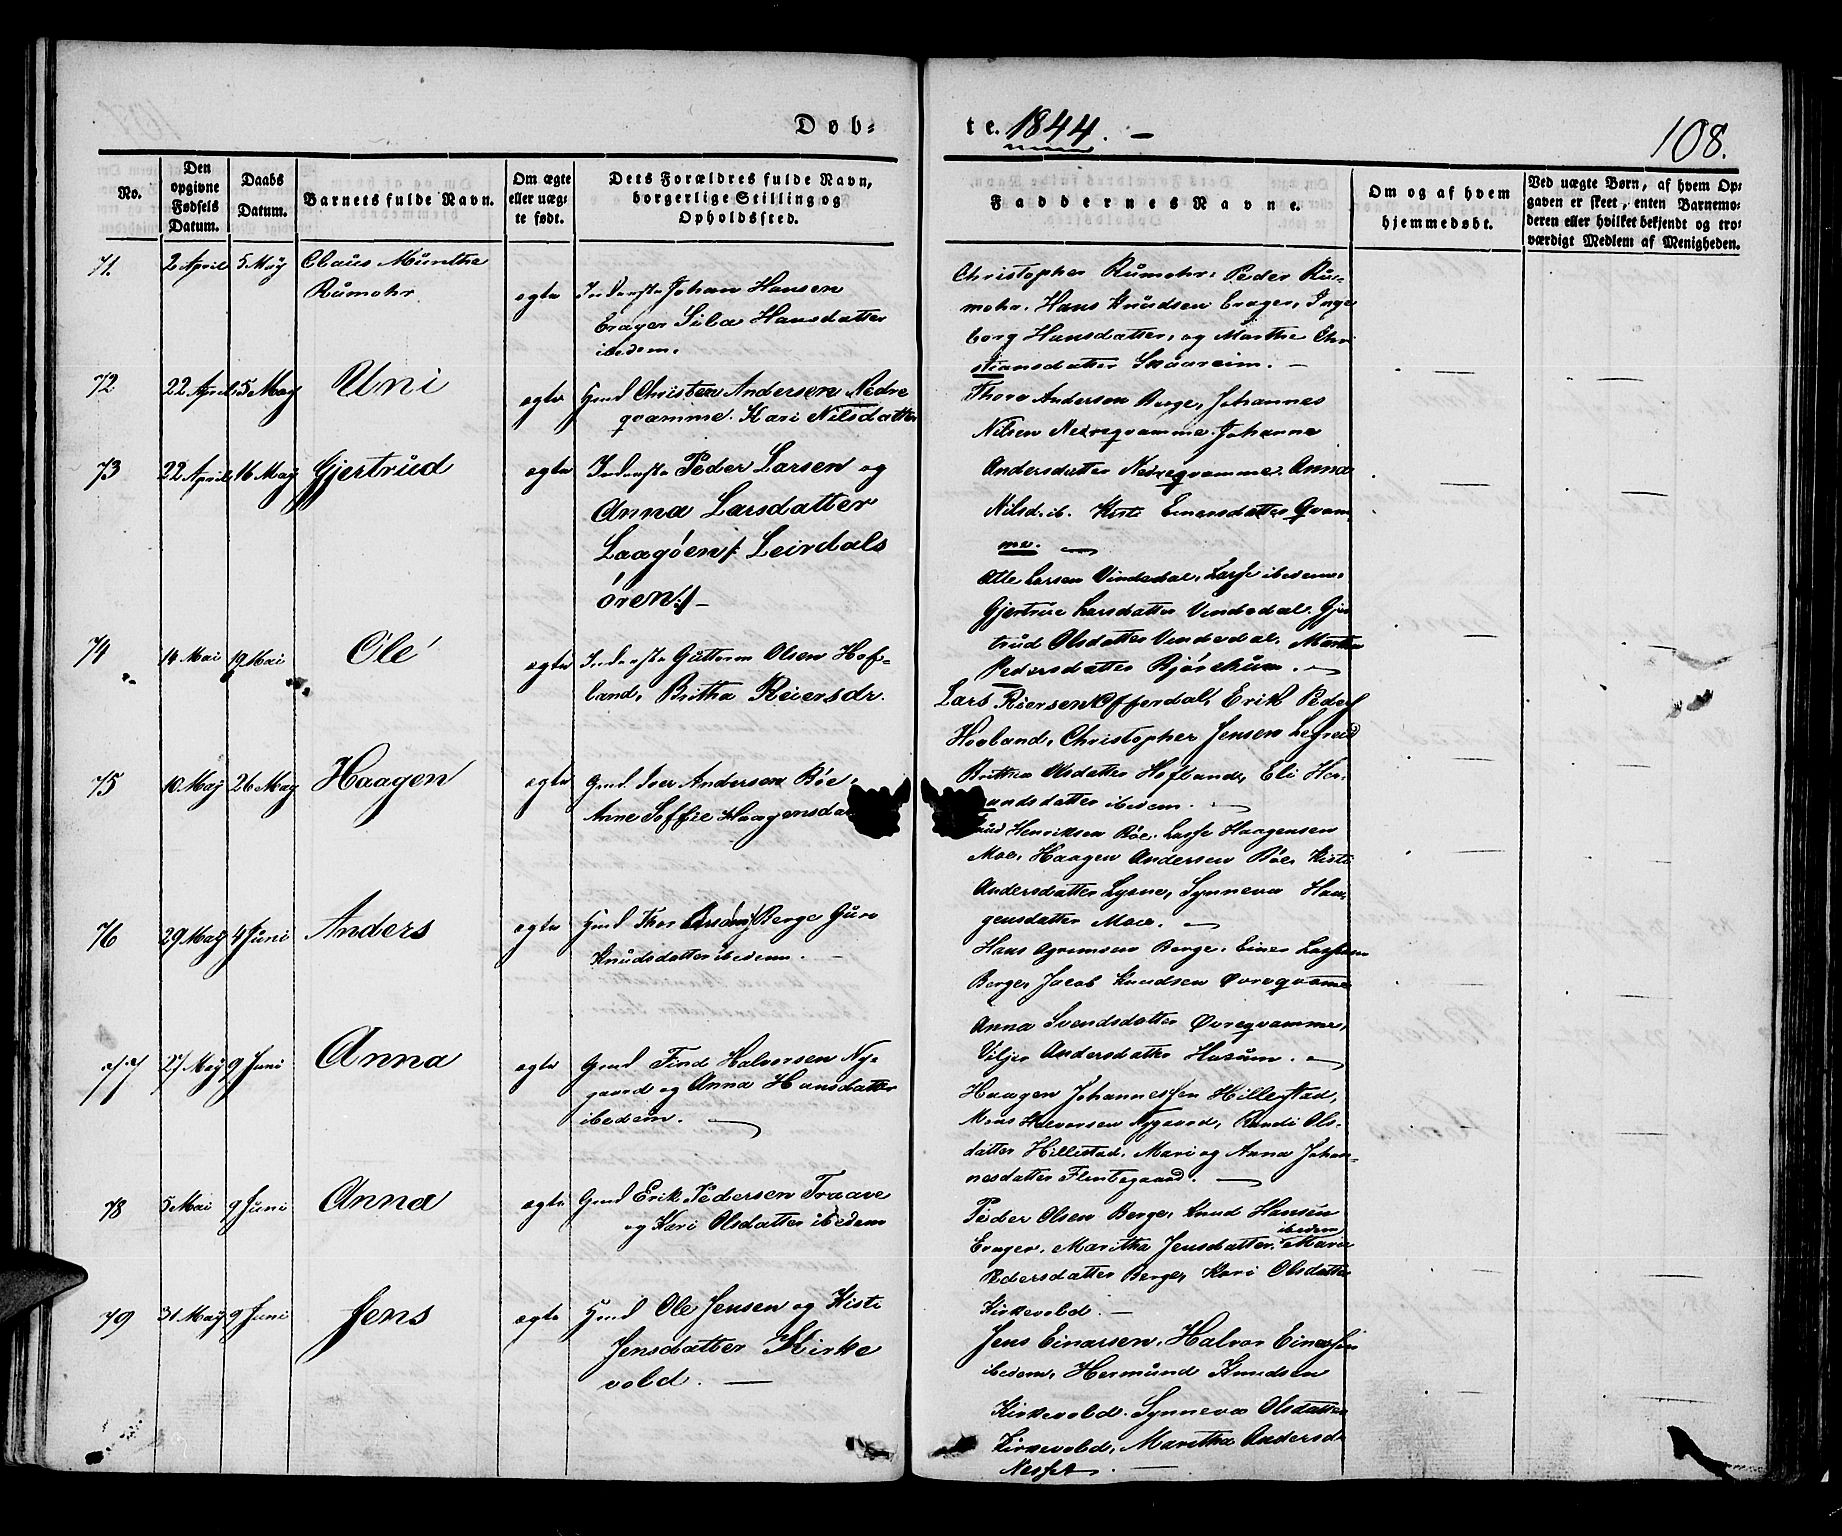 Døb-
te. 1844. -
108.
No.
Den opgivne Fødsels Datum.
Daabs Datum.
Barnets fulde Navn.
Om ægte eller uæg-
te født.
Dets Forældres fulde Navn,
borgerlige Stilling og
Opholdssted.
Faddernes Navne.
Om og af hvem
hjemmedøbt.
Ved uægte Børn, af hvem Op-
gaven er skeet, enten Barnemo-
deren eller hvilket bekjendt og tro-
værdigt Medlem af Menigheden.
71. 2 April 5 May Claus Munthe
Rumohr
ægte Inderste Johan Hansen
Erager Sila Hansdatter
ibedem.
Christopher Rumohr, Peder Ru-
mohr, Hans Knudsen Erager, Inge
borg Hansdatter, og Marthe Chri
stiansdatter Skaareim. -
72 22 April 5 May Uni
ægte Gmd Christen Andersen Nedre
qvamme. Kari Nilsdatter
Thore Andersen Berge, Johannes
Nilsen Nedreqvamme. Johanna
Andersdatter Nedreqvamme. Anna
Nilsd. ib. Kisti Einersdatter Qvam
me.
73 22 April 16 May Gjertrud
ægte Inderste Peder Larsen og
Anna Larsdatter
Laagøen /: Leirdals
øren :/ -
Larsen Vindedal, Lasse ibedem,
Gjertrue Larsdatter Vindedal. Gjer
trud Olsdatter Vindedal. Martha
Pedersdatter Bjørkum.
74 14 Mai 19 Mai Ole
ægte Inderste Guttorm Olsen Hof-
land, Britha Reiersdr.
Lars Reiersen Offerdal, Erik Peders
Hovland, Christopher Jensen
Brithea Olsdatter Hofland, Eli Her-
mundsdatter ibedem.
75 10 May 26 May Haagen
ægte Gmd. Iver Andersen Bøe,
Anne Soffie Haagensda
Henriksen Bøe. Lasse Haagensen
Moe, Haagen Andersen Bøe, Kisti
Andersdatter Lysne, Synneva Haa
gensdatter Moe.
76 29 May 4 Juni Anders
ægte Gmd Thor Berge Guro
Knudsdatter ibedem. -
Hans Berge. Einer Lassesen
Berge, Jacob Knudsen Øvreqvamme
Anna Svendsdatter Øvreqvamme,
Andersdatter Husum.
77 27 May 9 Juni Anna
ægte Gmd Find Halvorsen Ny-
gaard og Anna Hansdatter
ibedem.
Haagen Johannessen Hillestad,
Mons Halvorsen Nygaard, Randi Ols-
datter Hillestad. Mari og Anna Johan-
nesdatter
78 5 Mai 9 Juni Anna
ægte Gmd Erik Pedersen Traave
og Kari Olsdatter ibedem
Peder Olsen Berge, Knud Hansen
Erager. Maritha Jensdatter ibedem, Marie
Pedersdatter Berge, Kari Olsdatter
Kirkevold. -
79 31 May 9 Juni Jens
ægte Gmd Ole Jensen og Kisti
Jensdatter Kirke
vold. -
Jens Einarsen, Halvor Einarsen
ibedem, Hermund Knudsen
Kirkevold. Synneva Olsdatter
Kirkevold, Maritha Andersd.
Nesset. -